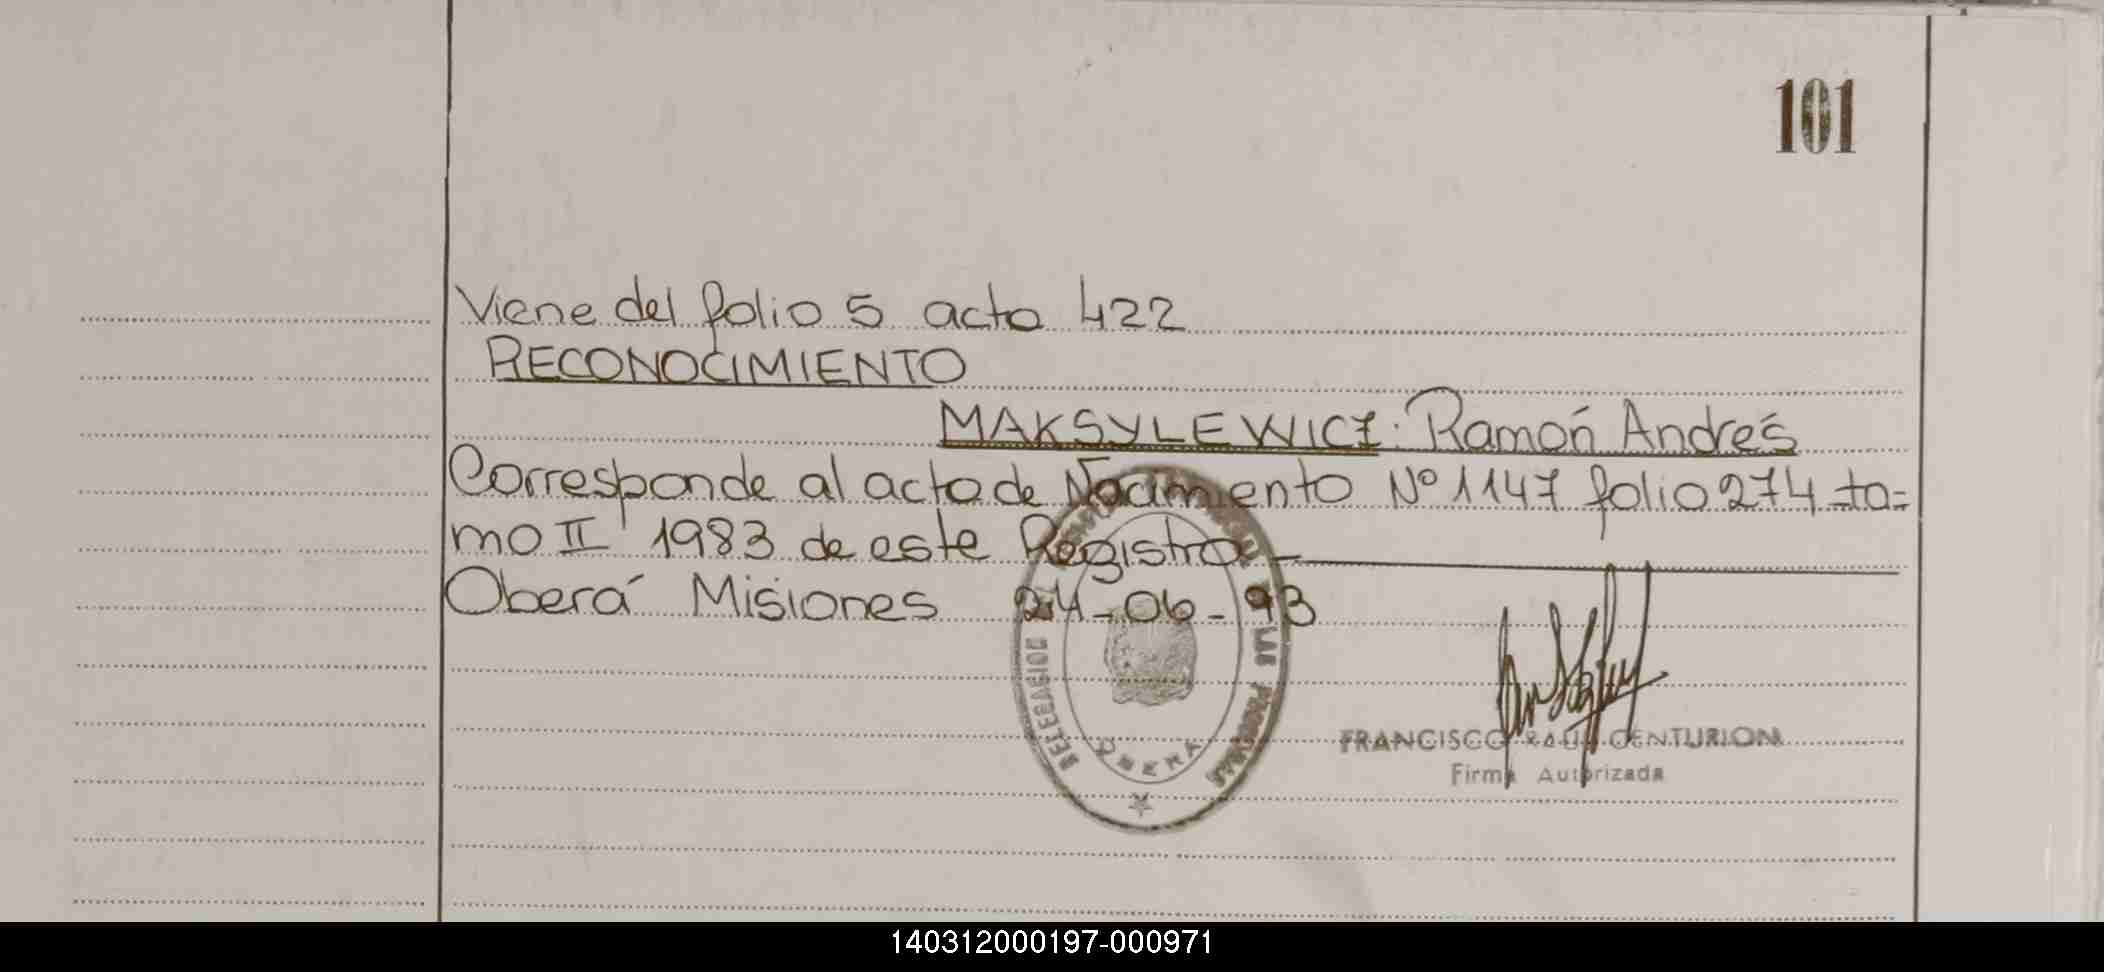 101
Viene del folio 5 acta 422
RECONOCIMIENTO
MAKSYLEWICZ: Ramón Andrés
Corresponde al acta de Nacimiento Nº 1147 folio 274 to=
mo II 1983 de este Registro
Oberá Misiones 24-06-93
DELEGACION LAS PERSONAS
OBERA
FRANCISCO RAUL CENTURION
Firma Autorizada
140312000197-000971